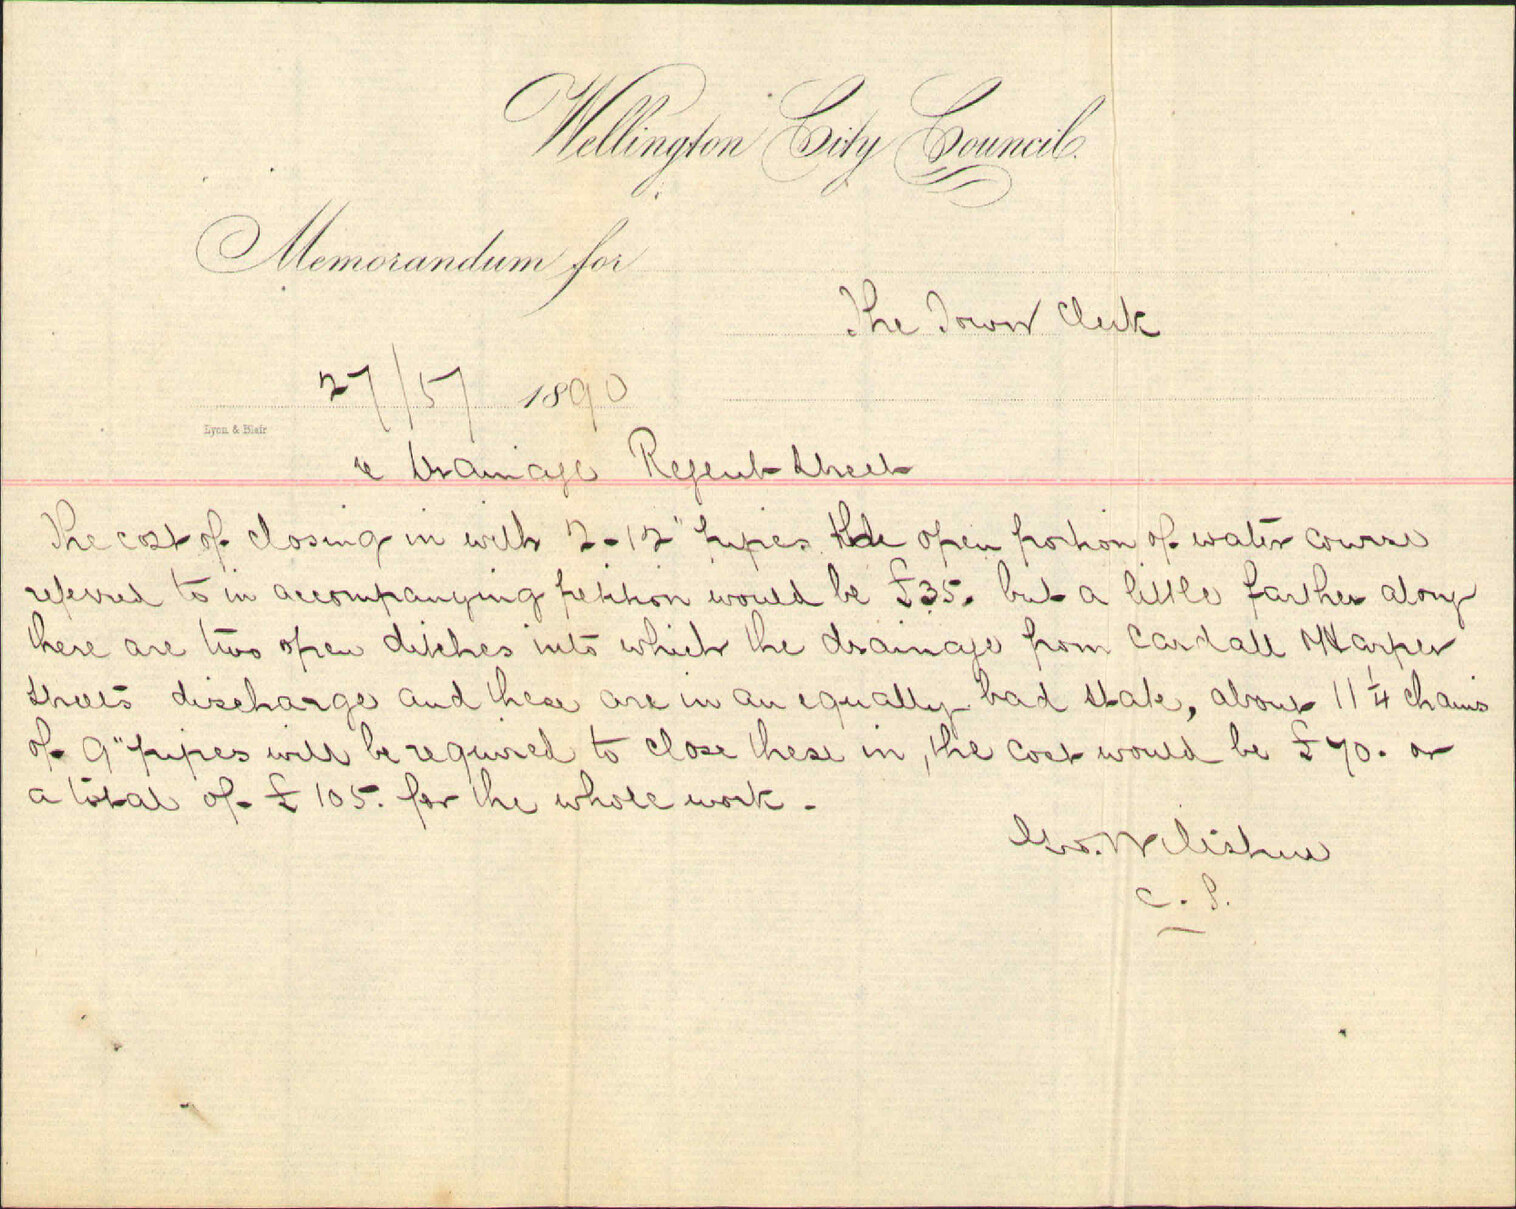 Wellington City Council.
Memorandum for
The Town Clerk
27/5/ 1890
Lyon & Blair
re Drainage Regent Street
The cost of closing in with 2-12" pipes the open portion of water course
referred to in accompanying petition would be £35. but a little farther along
there are two open ditches into which the drainage from Cardall & Harper
Streets discharge and these are in an equally bad state, about 11 1/4 chains
of 9" pipes will be required to close these in, the cost would be £70. or
a total of £105. for the whole work.
Geo. Wiltshire
C. S.